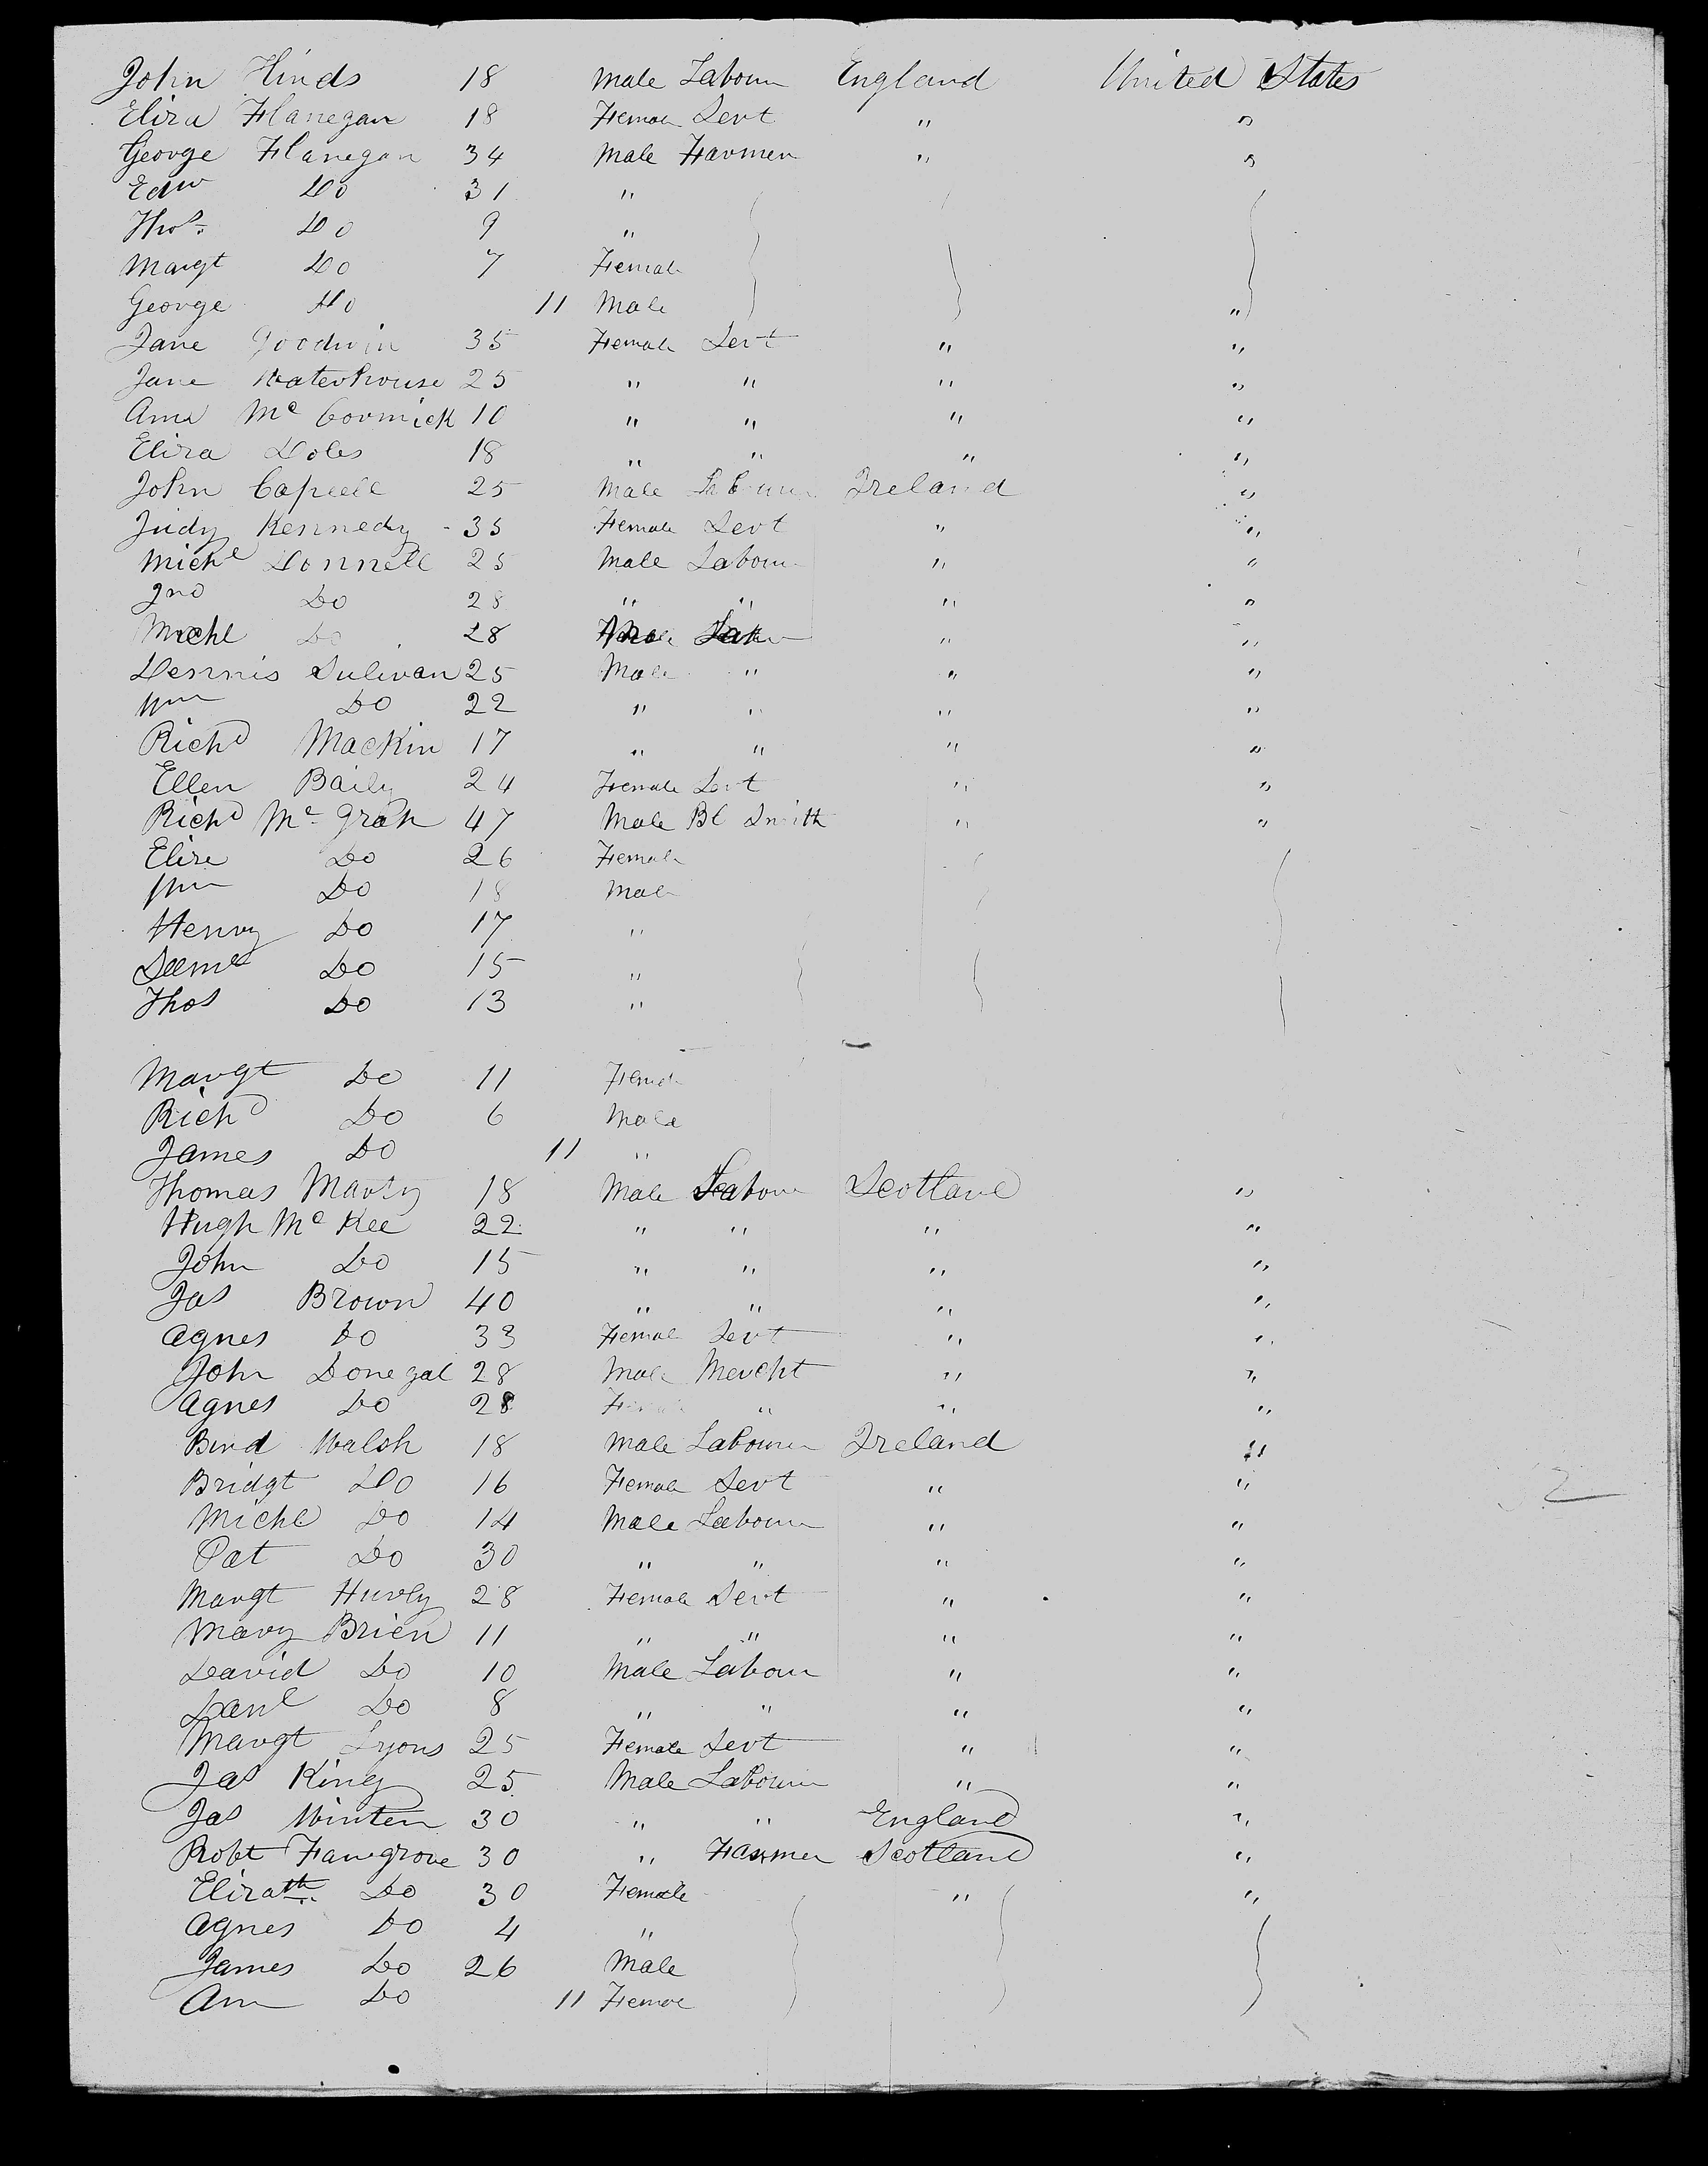 John Hinds 18 Male Labourr England United States
Eliza Flanegan 18 Female Servt " "
George Flanegan 34 Male Farmer " "
Edw Do 31 "
Thos. Do 9 "
Margt Do 7 Female
George Do 11 Male "
Jane Goodwin 35 Female Servt " "
Jane Waterhouse 25 " " " "
Ann Mc Cormick 10 " " " "
Eliza Doles 18 " " " "
John 25 Male Labourr Ireland "
Judy Kennedy 35 Female Servt " "
Michl Donnell 25 Male Labourr " "
Jno Do 28 " " " "
Michl Do 28 " "
Dennis Sulivan 25 Male " " "
Wm Do 22 " " " "
Richd Mackin 17 " " " "
Ellen Baily 24 Female Servt " "
Richd Mc Grah 47 Male Bl Smith " "
Eliza Do 26 Female
Wm Do 18 Male
Henry Do 17 "
Saml Do 15 "
Thos Do 13 "
Margt Do 11 Female
Richd Do 6 Male
James Do 11 "
Thomas Marty 18 Male Labourr Scotland "
Hugh Mc Kee 22 " " " "
John Do 15 " " " "
Jas Brown 40 " " " "
Agnes Do 33 Female Servt " "
John Donegal 28 Male Mercht " "
Agnes Do 28 Female " " "
Bird Walsh 18 Male Labourer Ireland "
Bridgt Do 16 Female Servt " "
Michl Do 14 Male Labourr " "
Pat Do 30 " " " "
Margt Hurly 28 Female Servt " "
Mary Brien 11 " " " "
David Do 10 Male Labourr " "
Danl Do 8 " " " "
Margt Lyons 25 Female Servt " "
Jas King 25 Male Labourer " "
Jas Winter 30 " " England "
Robt Faregrove 30 " Farmer Scotland "
Elizath Do 30 Female " "
Agnes Do 4 "
James Do 26 Male
Ann Do 11 Female